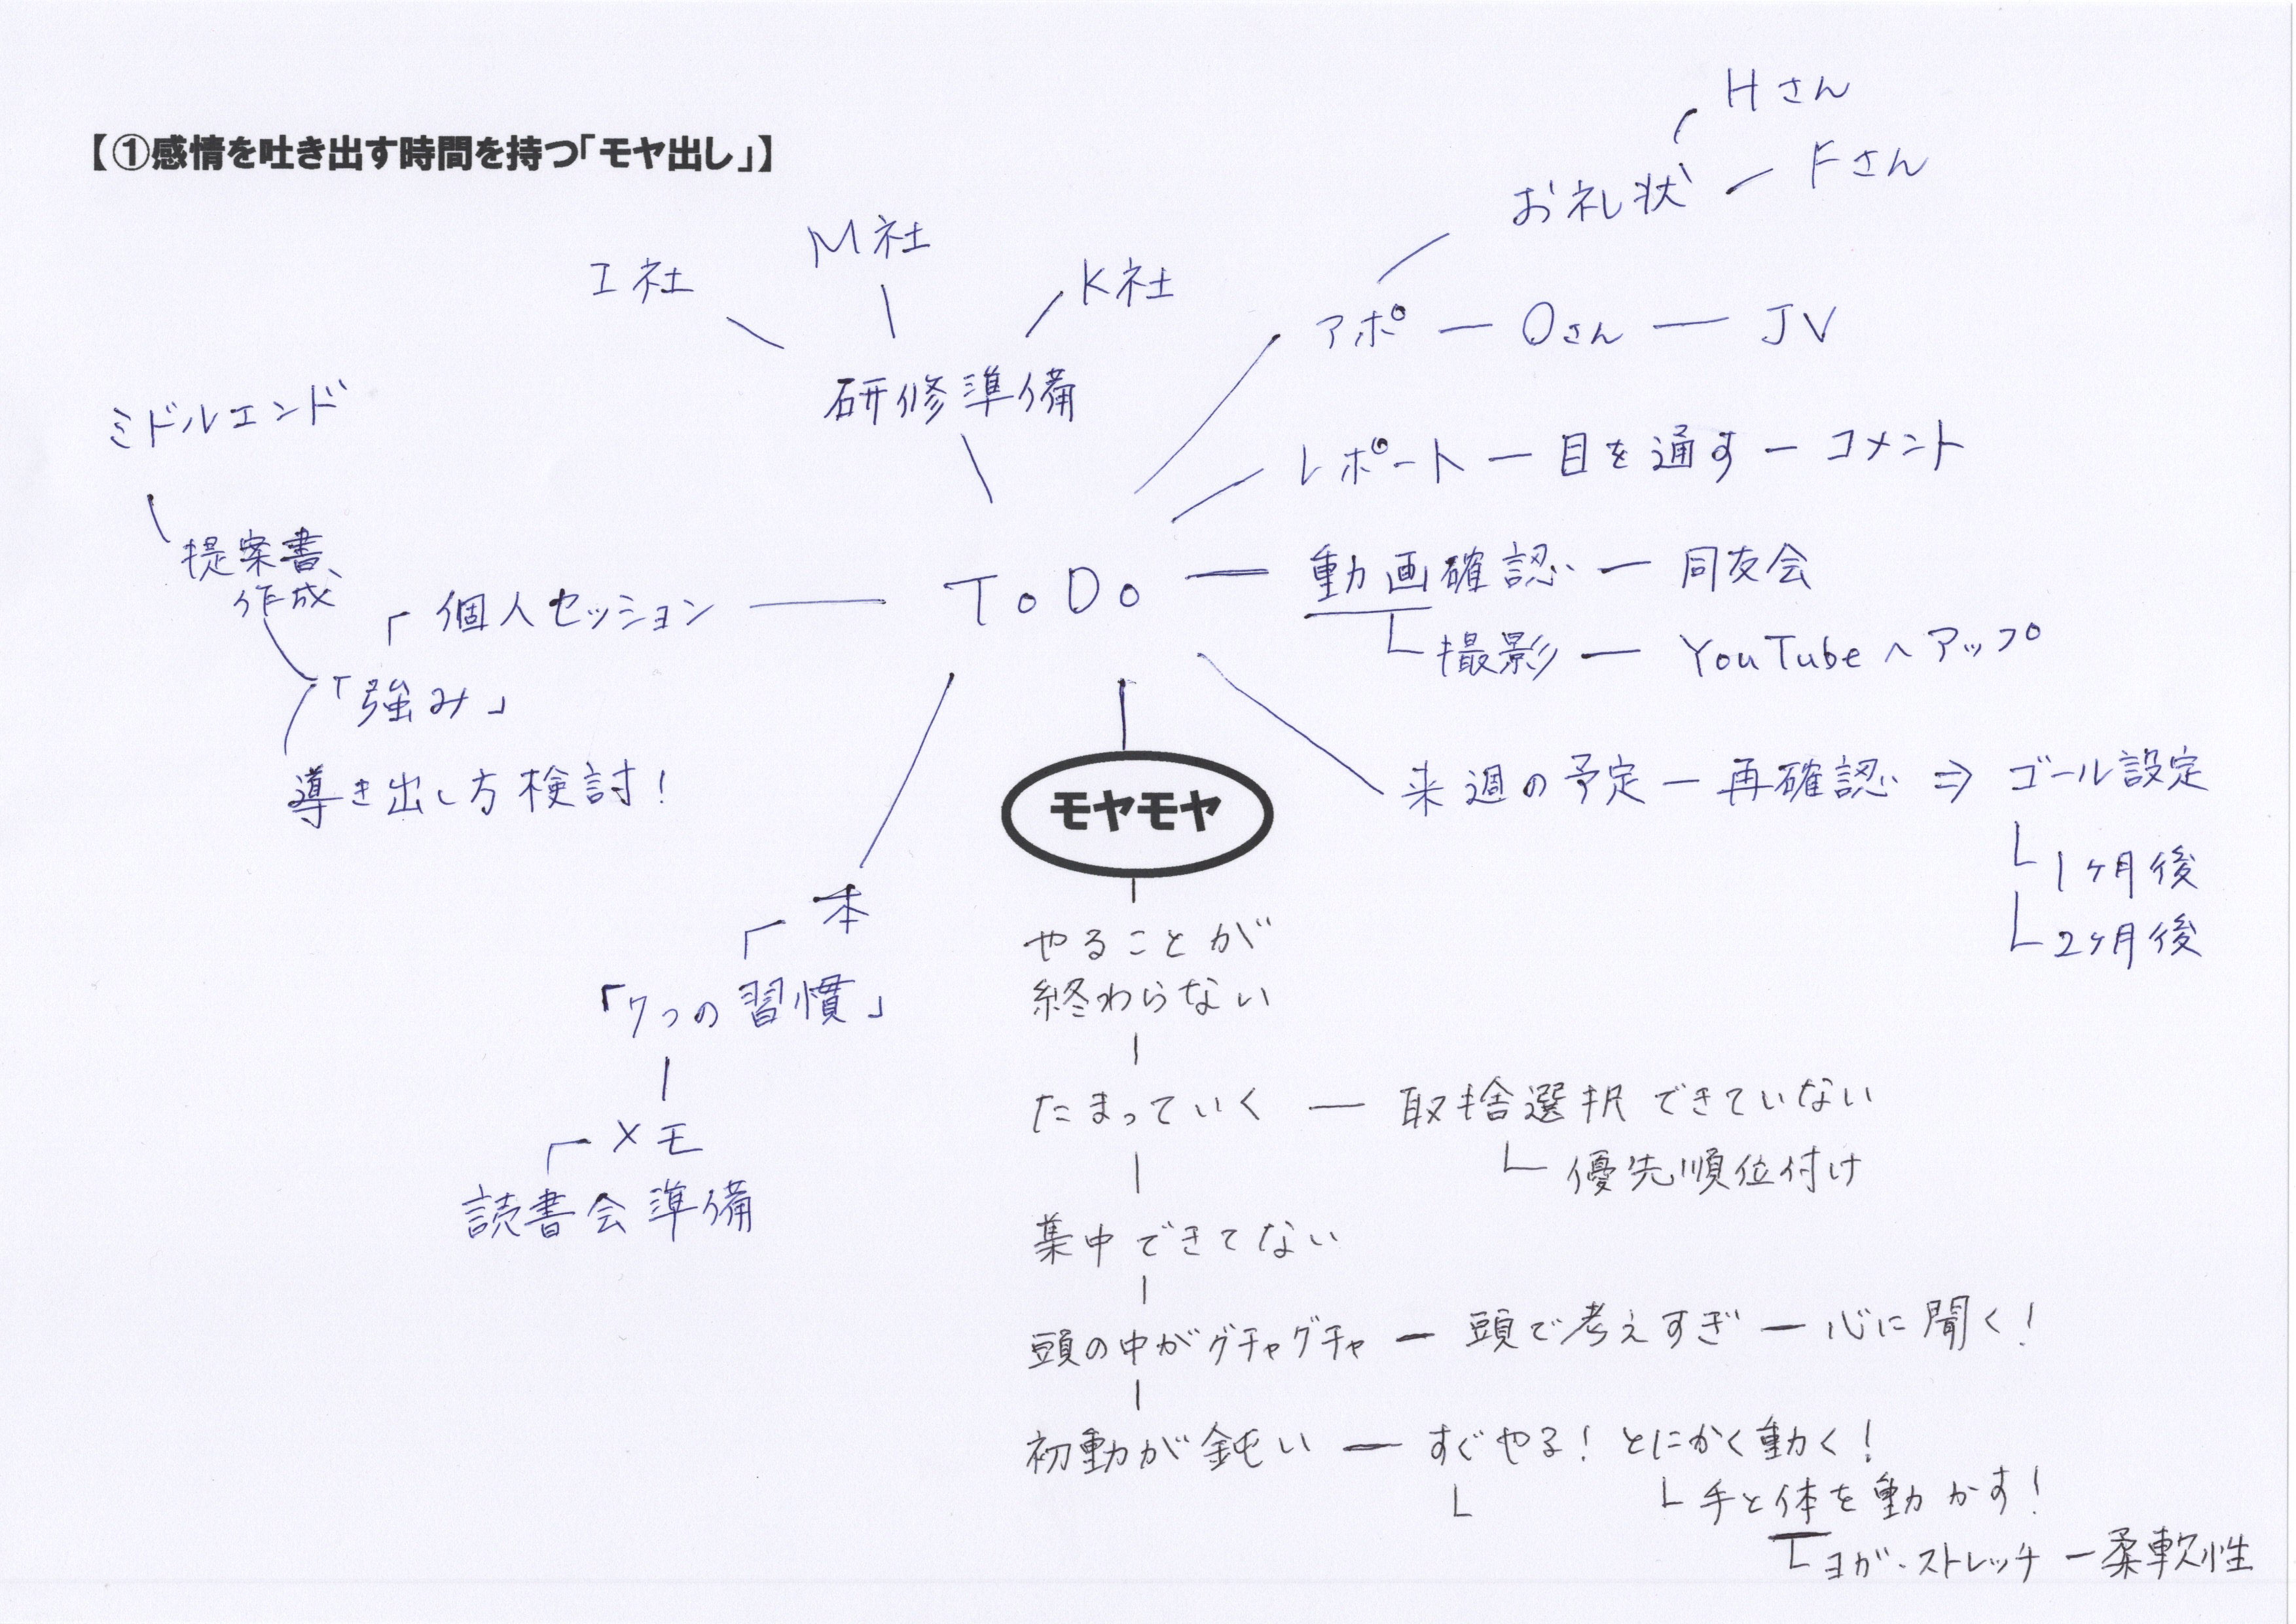 【①感情を吐き出す時間を持つ「モヤ出し」】
Hさん
お礼状 Fさん
I社 M社 K社
アポ Oさん JV
研修準備
レポート 目を通す コメント
ミドルエンド
提案書
作成
個人セッション
「強み」
導き出し方検討!
ToDo
動画確認 同友会
撮影 YouTubeへアップ
来週の予定 再確認 ⇒ ゴール設定
1ヶ月後
2ヶ月後
本
「7つの習慣」
メモ
読書会準備
モヤモヤ
やることが
終わらない
たまっていく 取捨選択できていない
優先順位付け
集中できてない
頭の中がグチャグチャ 頭で考えすぎ 心に聞く!
初動が鈍い すぐやる! とにかく動く!
手と体を動かす!
ヨガ・ストレッチ 柔軟性